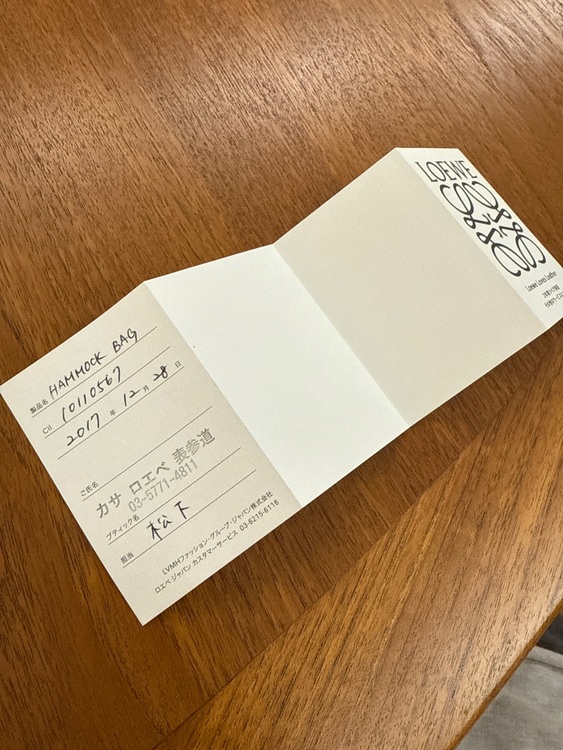 製品名 HAMMOCK BAG
CII 10110567
2017 年 12 月 28 日
ご氏名
カサ ロエベ 表参道
03-5771-4811
ブティック名
担当 松下
LVMHファッション・グループ・ジャパン株式会社
ロエベ ジャパン カスタマーサービス 03-6215-6116
LOEWE
Loewe Loves Leather